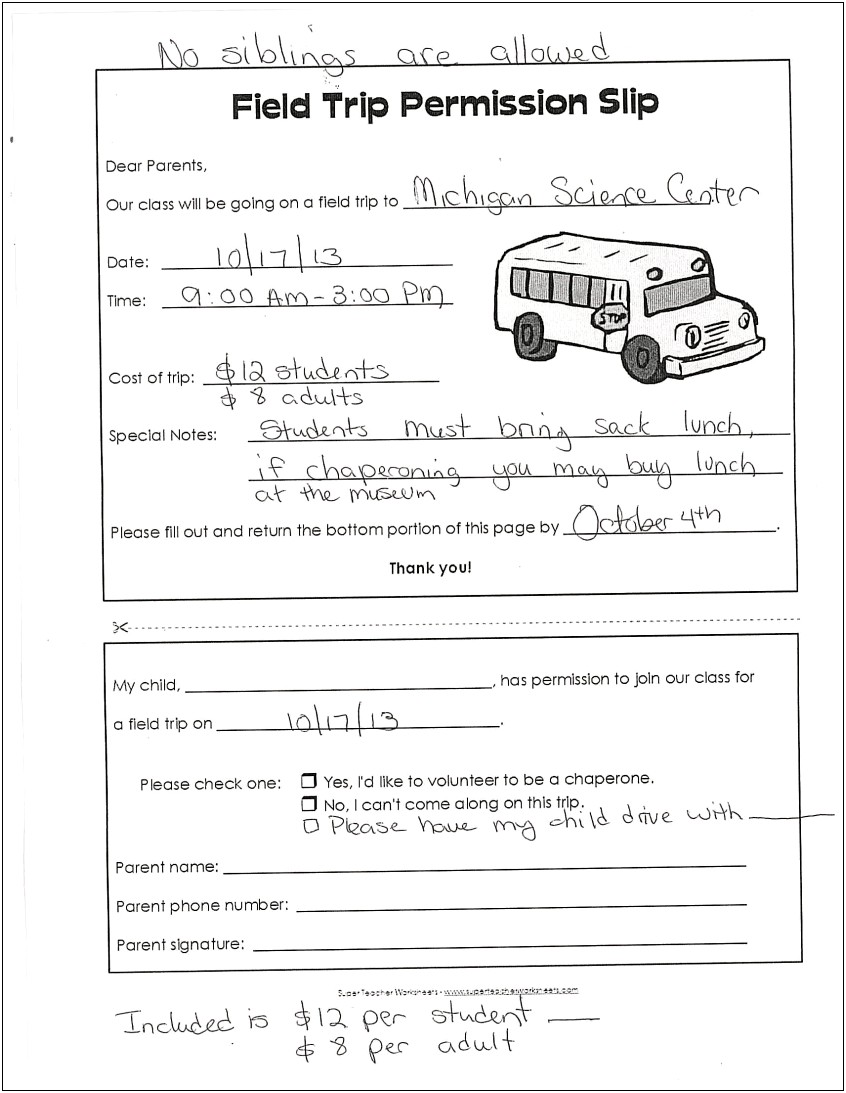 No siblings are allowed
Field Trip Permission Slip
Dear Parents,
Our class will be going on a field trip to Michigan Science Center
Date: 10/17/13
Time: 9:00 AM - 3:00 PM
STOP
Cost of trip: $12 students
$ 8 adults
Special Notes: Students must bring sack lunch,
if chaperoning you may buy lunch
at the museum
Please fill out and return the bottom portion of this page by October 4th.
Thank you!
My child, ____________________, has permission to join our class for
a field trip on 10/17/13.
Please check one: ☐ Yes, I'd like to volunteer to be a chaperone.
☐ No, I can't come along on this trip.
☐ Please have my child drive with ______
Parent name: ____________________
Parent phone number: ____________________
Parent signature: ____________________
Super Teacher Worksheets - www.superteacherworksheets.com
Included is $12 per student ____
$ 8 per adult